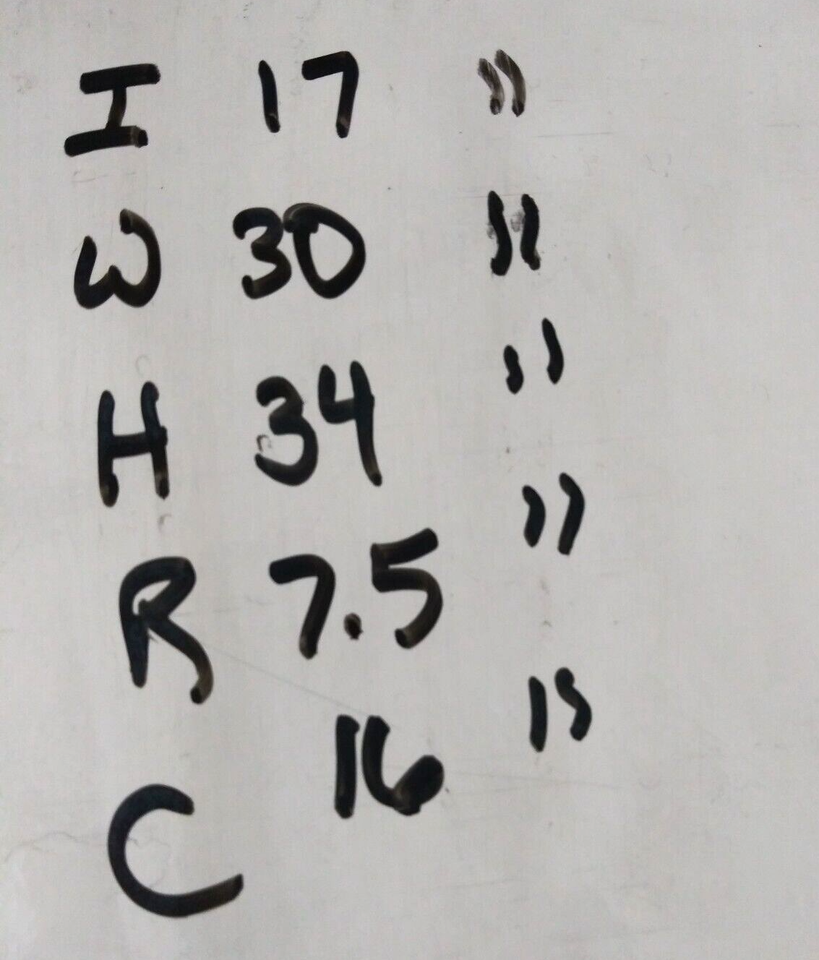 I 17 "
W 30 "
H 34 "
R 7.5 "
C 16 "